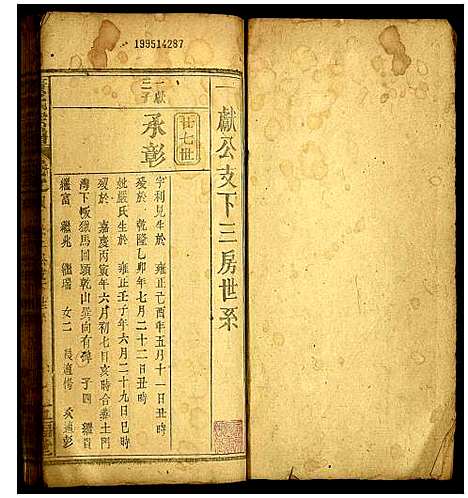 199514287
一獻公支下三房世系
廿七世
一獻
三子
承彰
字利見生於 雍正己酉年五月十一日丑時
歿於 乾隆乙卯年七月二十二日丑時
妣嚴氏生於 雍正壬子年六月二十九日巳時
歿於 嘉慶丙寅年六月初七日亥時合葬土門
灣下畈獵馬回頭乾山巽向有碑 子四 繼貴
繼富 繼兆 繼瑞 女二 長適楊 次適彭